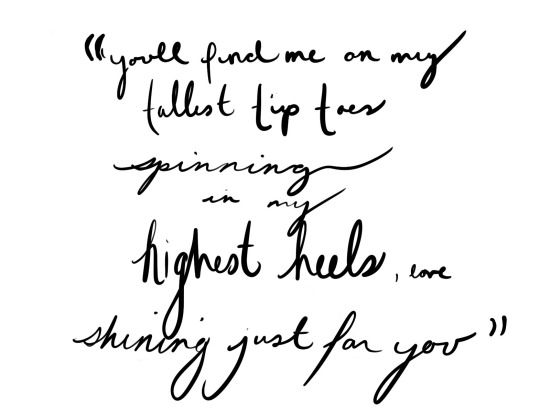 "you'll find me on my
tallest tip toes
spinning
in my
highest heels, love
shining just for you"